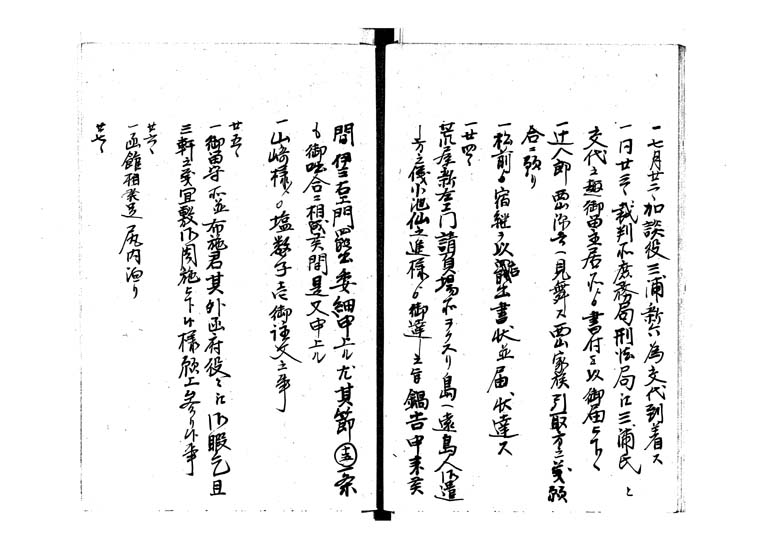 一七月廿二日加談役三浦新六為交代到着ス
一同廿三日裁判所庶務局刑法局江三浦氏と
交代之趣御留主居所より書付を以御届
一辻八郎西山へ見舞ス西山家族引取方之義願
合ニ預り
一松前より宿継ヲ以書状並届状達ス
一廿四日
荒屋新左エ門請負場所ヲクスリ島へ遠島人御遣
し方之儀小池仙之進様より御達し之旨鍋吉申来候
間伊三右エ門罷出委細申上ル尤其節一条
も御咄合ニ相成候間是又申上ル
一山崎様より塩数子御注文之事
廿五日
一御留守所並布施君其外函府役々江御暇乞且
三軒之義宜敷御周施被下候様願上参り候事
廿六日
一函館相発足尻内泊り
廿七日